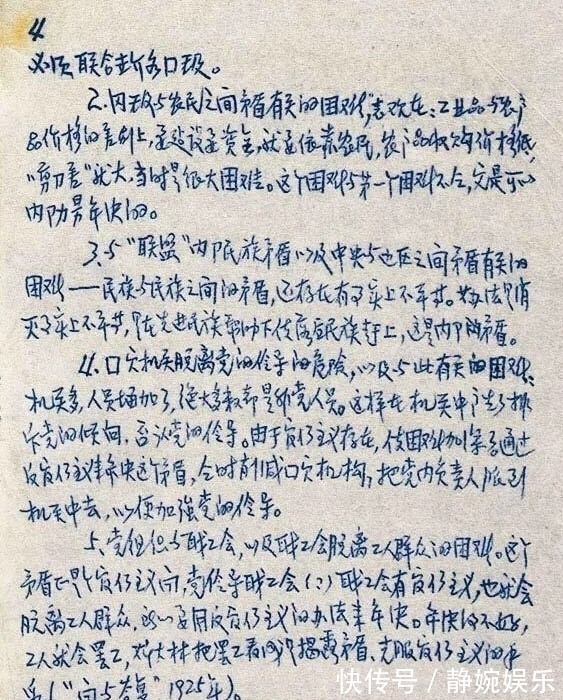 4
必须联合世界各口段。
2.内政与农民之间矛盾有关的困难,表现在:工业品与农产
品价格的差别上,要建设要资金,就要依靠农民,农产品收购价格低,
“剪刀差”就大,当时是很大困难。这个困难与第一个困难不同,它是可以
内部解决的。
3.与“联盟”内部民族矛盾以及中央与地区之间矛盾有关的
困难——民族与民族之间的矛盾,还存在有事实上不平等。办法只有消
灭事实上不平等,在先进民族帮助下使落后民族赶上,这是内部的矛盾。
4.口家机关脱离党的领导的危险,以及与此有关的困难:
机关多,人员增加了,绝大多数都是非党人员。这样在机关中产生了排
斥党的倾向,否认党的领导。由于官僚主义存在,使困难加深了通过
反官僚主义来解决这个矛盾,合时精减口家机构,把党内负责人派到
机关中去,以便加强党的领导。
5.党组织与职工会,以及职工会脱离工人群众的困难。这个
矛盾是个官僚主义问,党领导职工会(:)职工会有官僚主义,也就会
脱离工人群众,所以要用反官僚主义的办法来解决。解决得不好,
工人就会罢工,斯大林把罢工看成是揭露矛盾,克服官僚主义的手
段(“问与答” 1925年)。
快传号/静婉娱乐